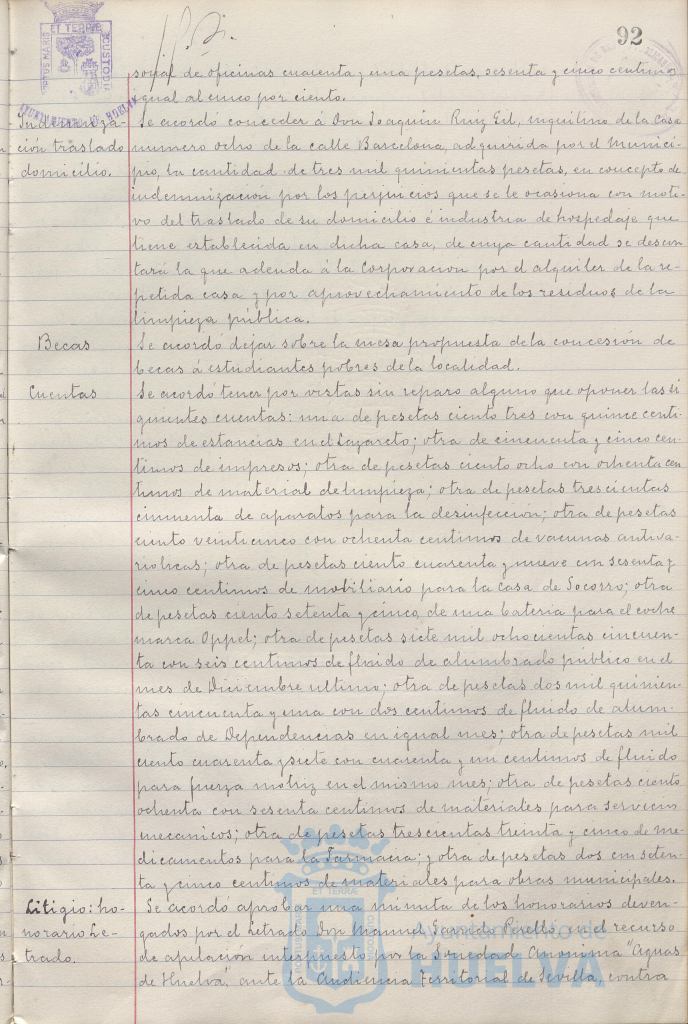 92
sonal de oficinas cuarenta y una pesetas, sesenta y cinco centimos
igual al cinco por ciento.
Indemniza-
cion traslado
domicilio.
Se acordó conceder á Don Joaquin Ruiz Gil, inquilino de la Casa
numero ocho de la calle Barcelona, adquirida por el Munici-
pio, la cantidad de tres mil quinientas pesetas, en concepto de
indemnización por los perjuicios que se le ocasiona con moti-
vo del traslado de su domicilio é industria de hospedaje que
tiene establecida en dicha casa, de cuya cantidad se descon
tará la que adeuda á la Corporacion por el alquiler de la re-
petida casa y por aprovechamiento de los residuos de la
limpieza pública.
Becas
Se acordó dejar sobre la mesa propuesta de la concesión de
becas á estudiantes pobres de la localidad.
Cuentas
Se acordó tener por vistas sin reparo alguno que oponer las si
guientes cuentas: una de pesetas ciento tres con quince centi-
mos de estancias en el Lazareto; otra de cincuenta y cinco cen-
timos de impresos; otra de pesetas ciento ocho con ochenta cen
timos de material de limpieza; otra de pesetas trescientas
cincuenta de aparatos para la desinfección; otra de pesetas
ciento veinticinco con ochenta centimos de vacunas antiva-
riolicas; otra de pesetas ciento cuarenta y nueve con sesenta y
cinco centimos de mobiliario para la Casa de Socorro; otra
de pesetas ciento setenta y cinco, de una bateria para el coche
marca Oppel; otra de pesetas siete mil ochocientas cincuen-
ta con seis centimos de fluido de alumbrado público en el
mes de Diciembre ultimo; otra de pesetas dos mil quinien-
tas cincuenta y una con dos centimos de fluido de alum-
brado de Dependencias en igual mes; otra de pesetas mil
ciento cuarenta y siete con cuarenta y un centimos de fluido
para fuerza motriz en el mismo mes; otra de pesetas ciento
ochenta con sesenta centimos de materiales para servicios
mecanicos; otra de pesetas trescientas treinta y cinco de me-
dicamentos para la Farmacia; y otra de pesetas dos con seten-
ta y cinco centimos de materiales para obras municipales.
Litigio: ho-
norario Le-
trado.
Se acordó aprobar una minuta de los honorarios deven-
gados por el Letrado Don Manuel Garrido Perelló, en el recurso
de apelación interpuesto por la Sociedad Anonima "Aguas
de Huelva", ante la Audiencia Territorial de Sevilla, contra
ayuntamiento de
HUELVA